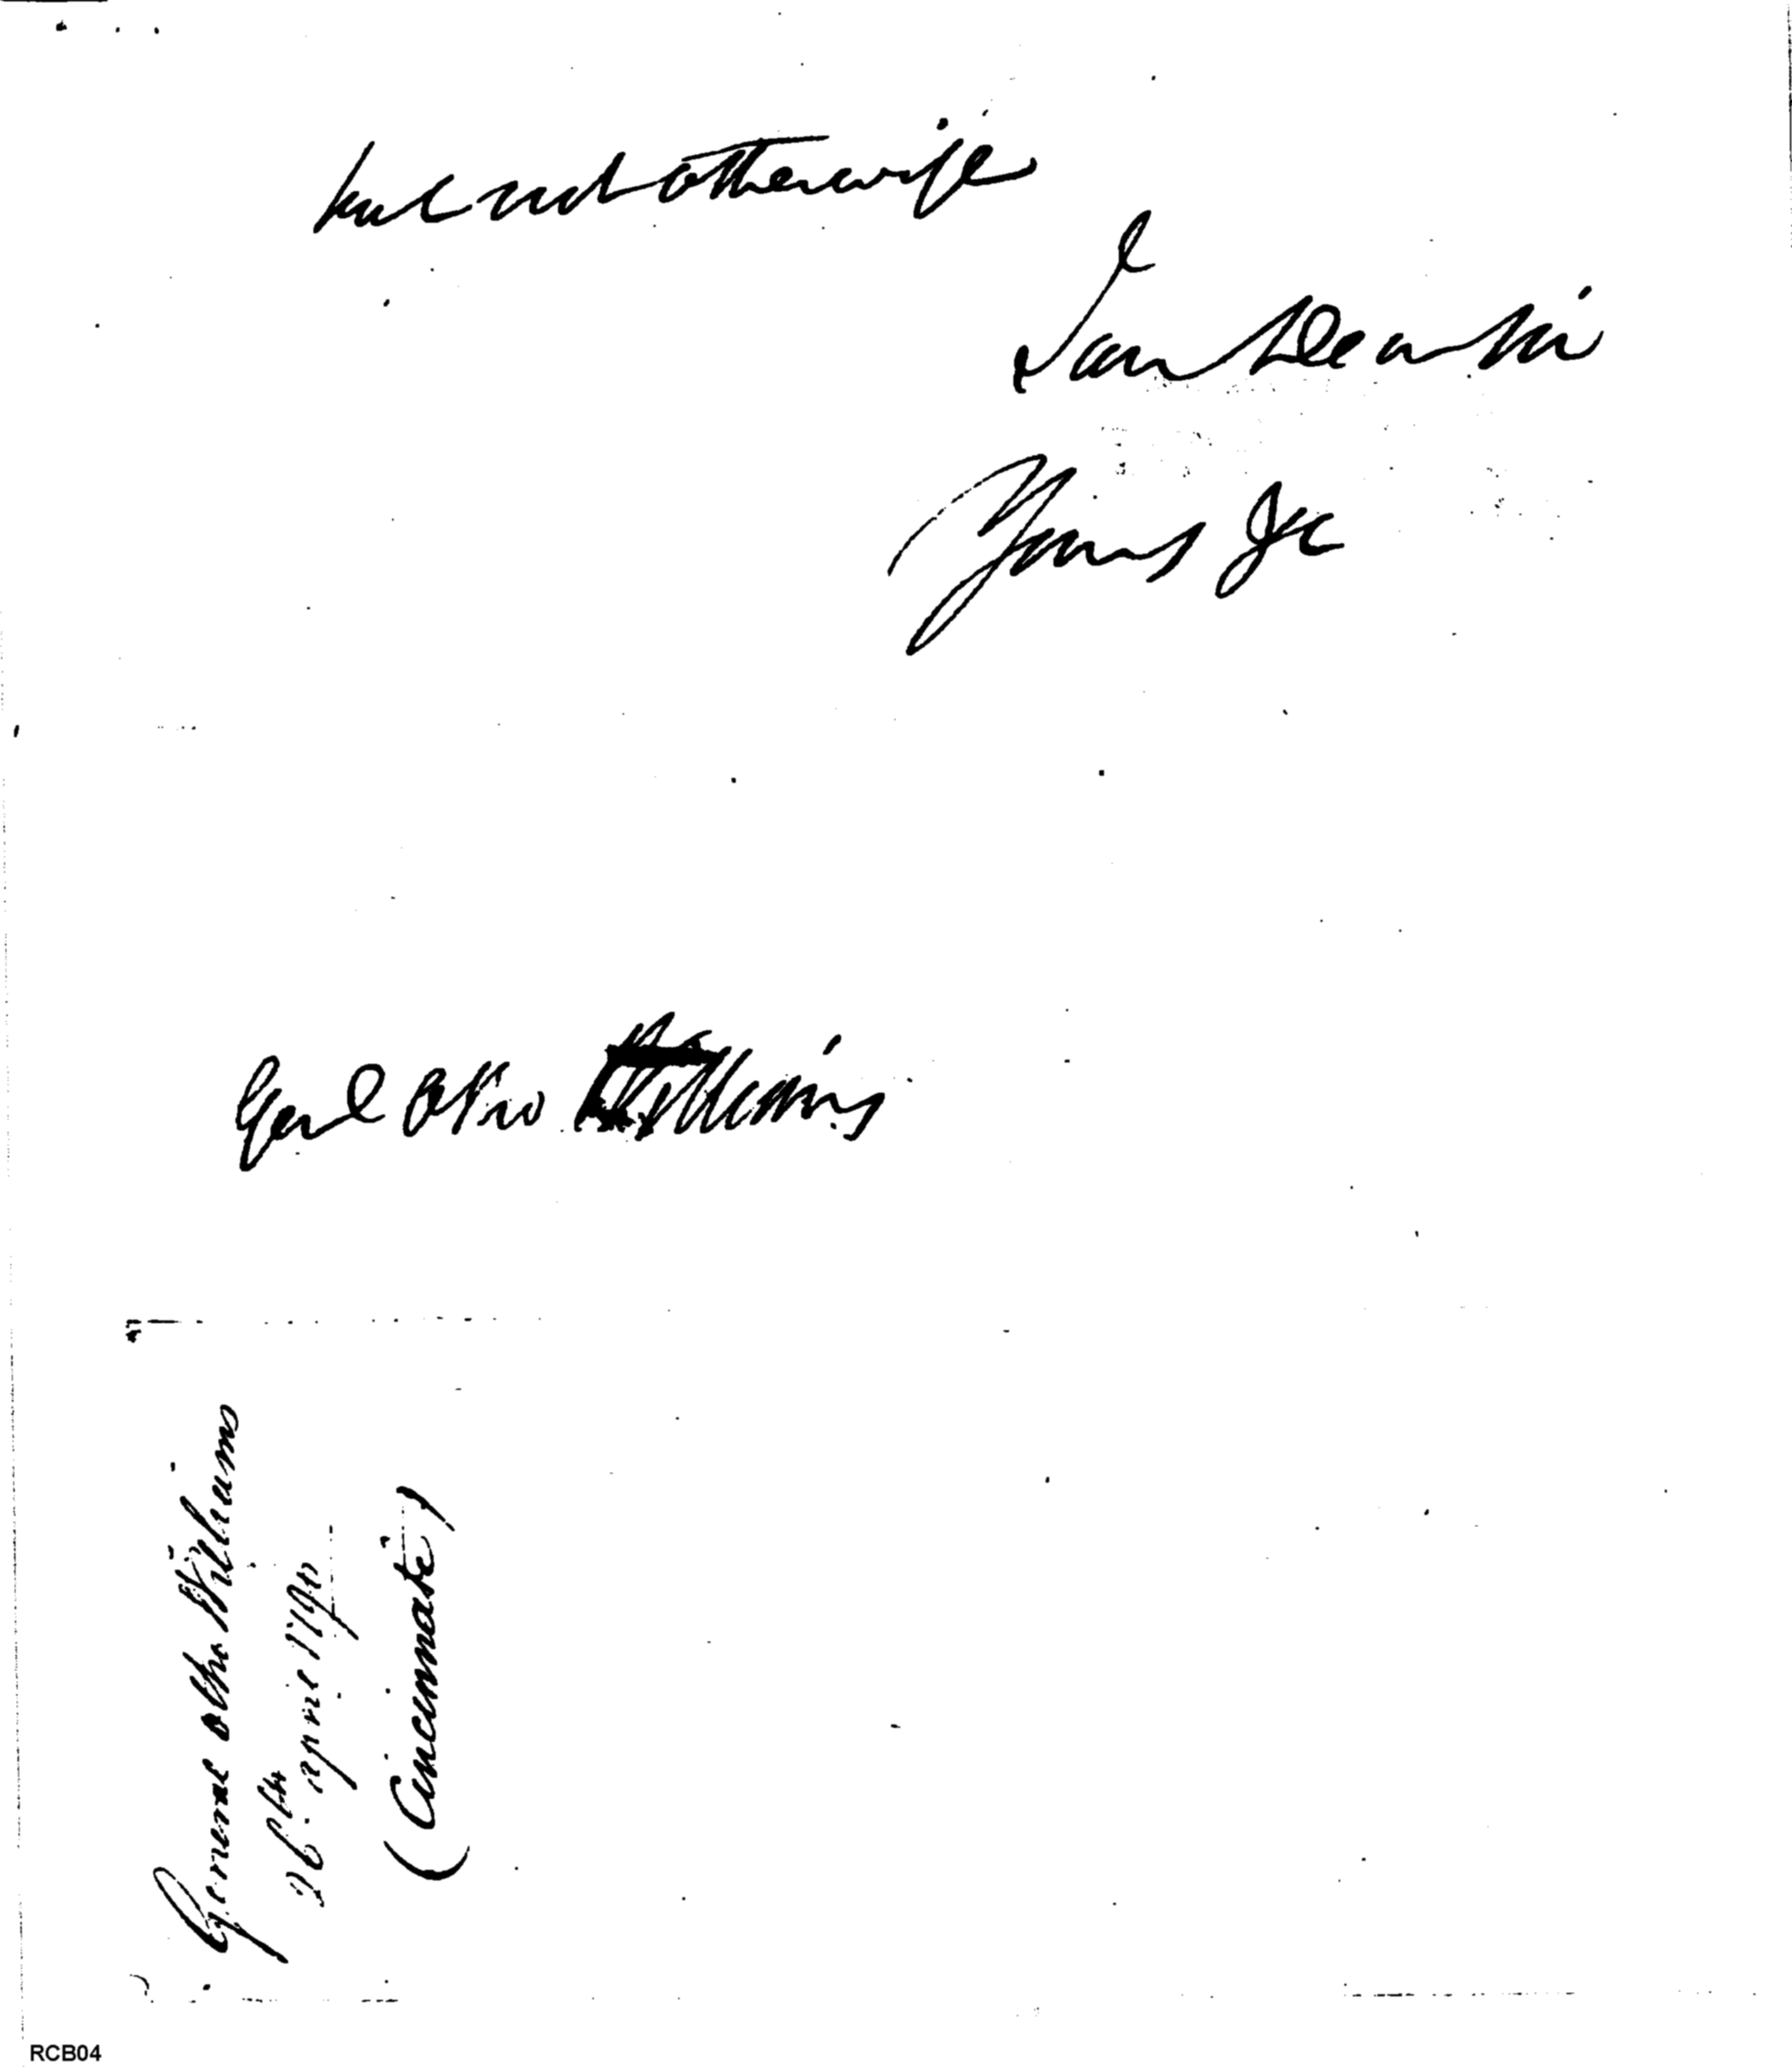 but not otherwise
I am Dear Sir
Yours &c
Genl Otho Williams
General Otho Williams
26th April 17
(Cincinnati)
RCB04